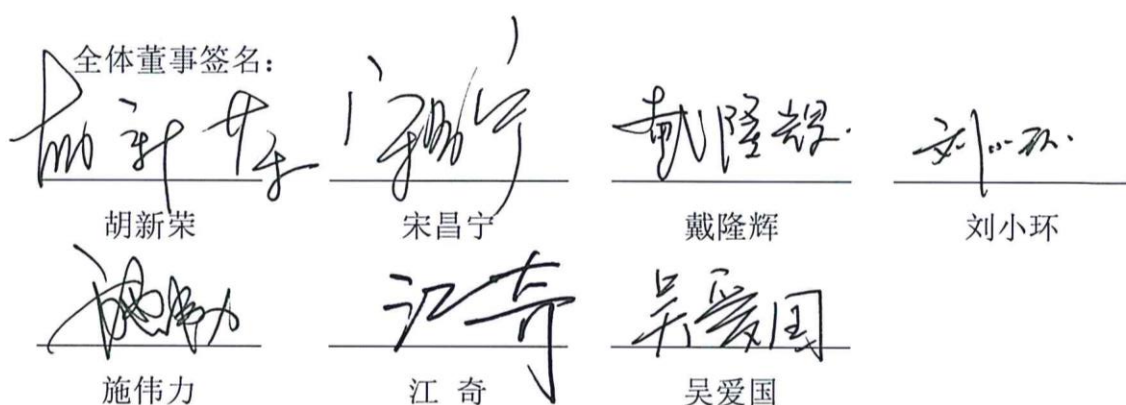 全体董事签名：
胡新荣 宋昌宁 戴隆辉 刘小环
胡新荣 宋昌宁 戴隆辉 刘小环
施伟力 江奇 吴爱国
施伟力 江 奇 吴爱国